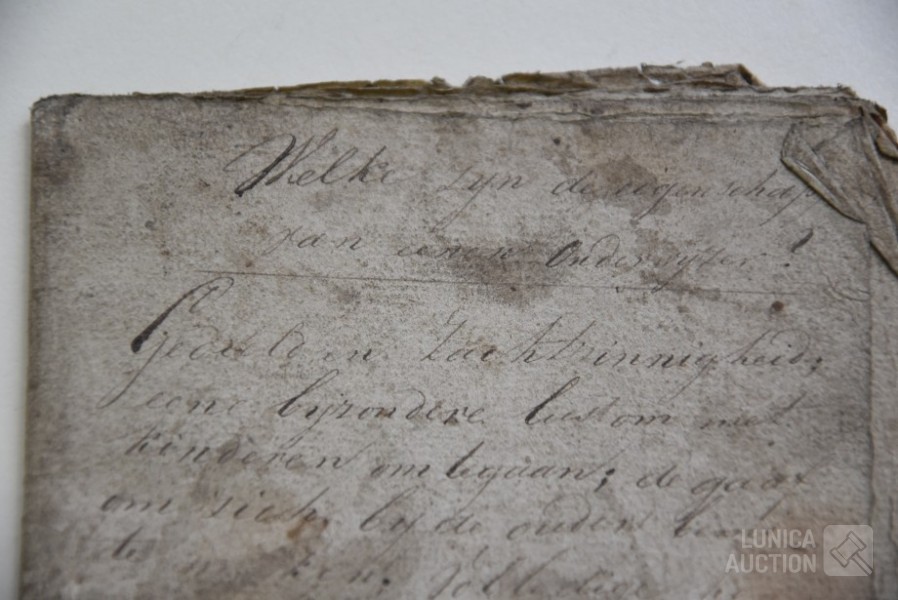 Welke syn de eigenschap
van eenen Onderwyser?
Geduld en Zachtzinnigheid;
eene byzondere lust om met
kinderen om te gaan; de gaaf
om sich by de ouderen
de
LUNICA
AUCTION